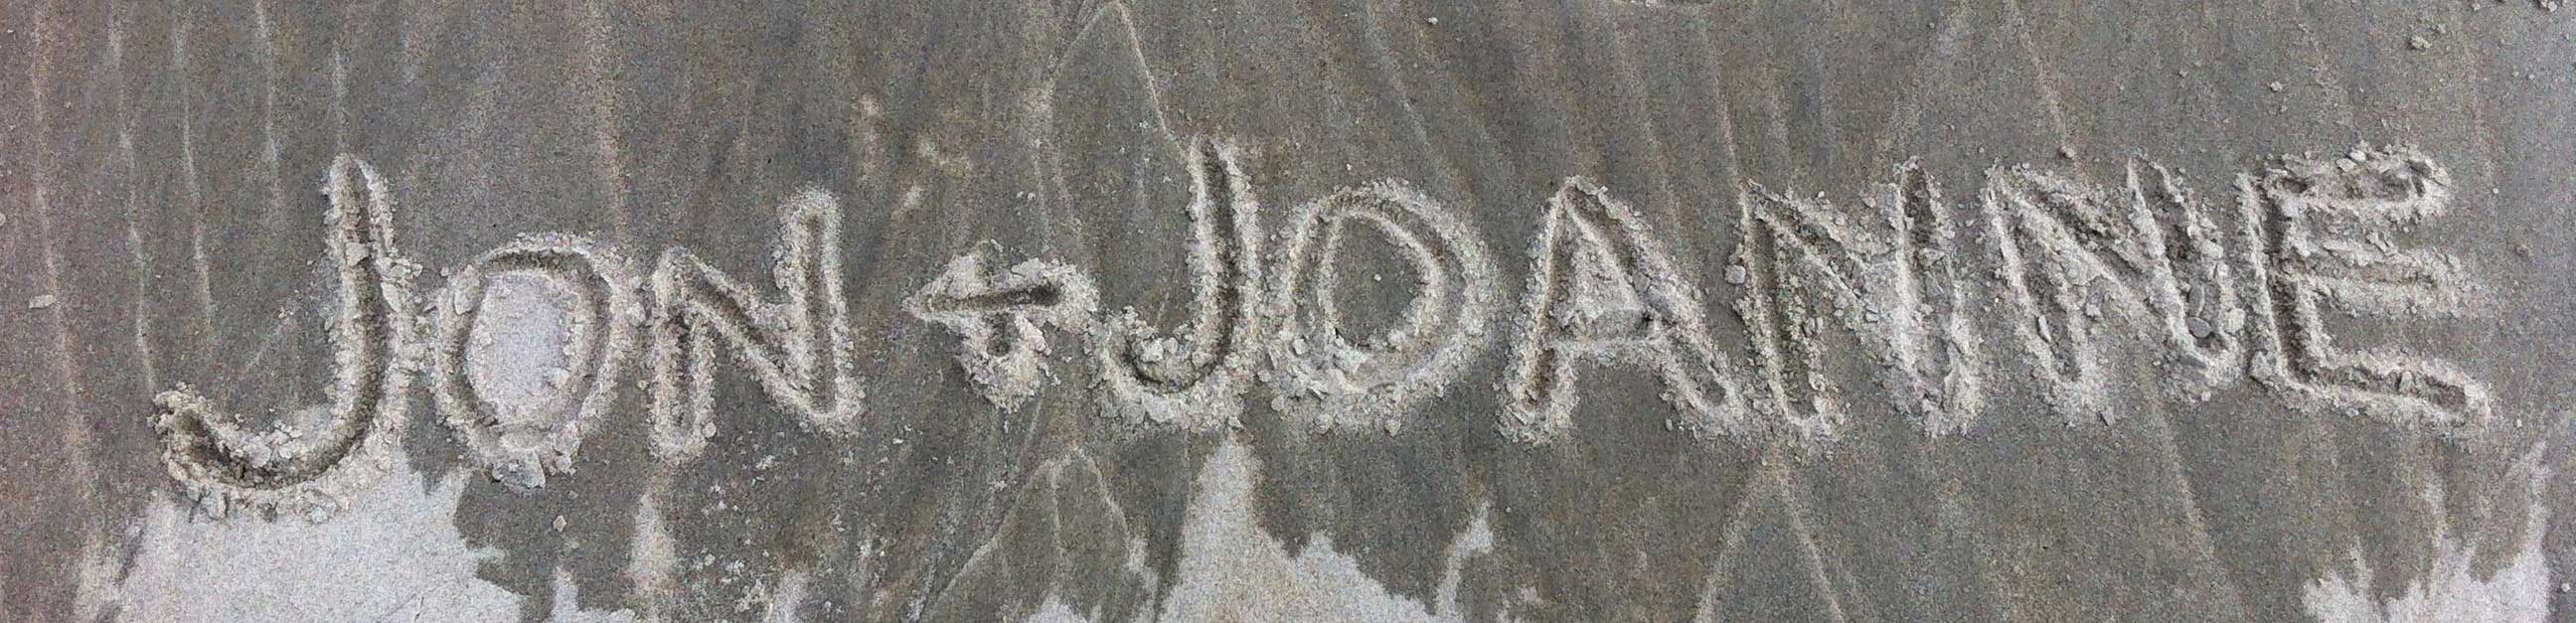 JON + JOANNE